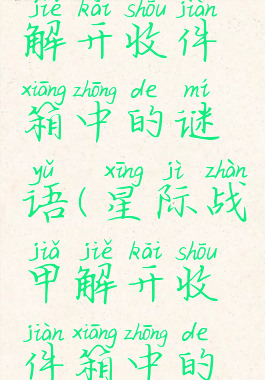 jiě kāi shōu jiàn
解开收件
xiāng zhōng de mí
箱中的谜
yǔ xīng jì zhàn
语(星际战
jiǎ jiě kāi shōu
甲解开收
jiàn xiāng zhōng de
件箱中的